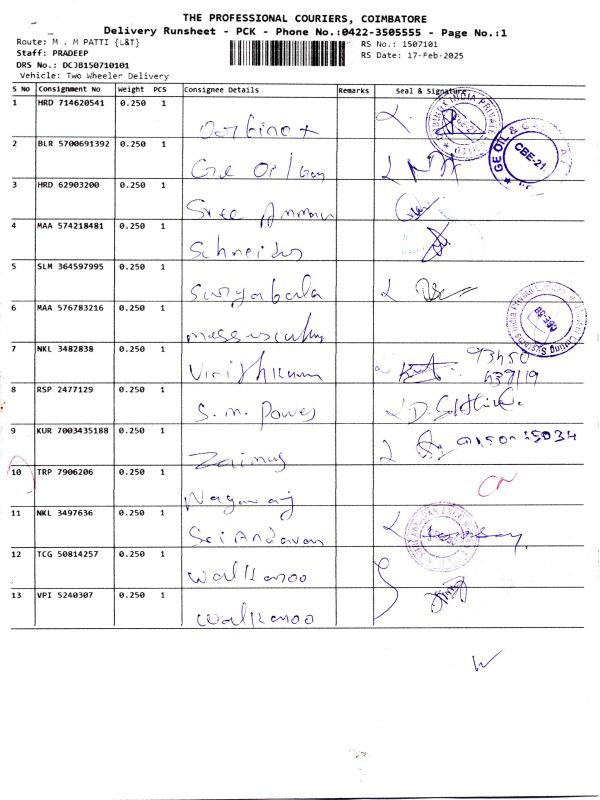 THE PROFESSIONAL COURIERS, COIMBATORE
Delivery Runsheet - PCK - Phone No.:0422-3505555 - Page No.:1
Route: M . M PATTI {L&T}
RS No.: 1507101
Staff: PRADEEP
RS Date: 17-Feb-2025
DRS No.: DCJB150710101
Vehicle: Two Wheeler Delivery
S No Consignment No Weight PCS Consignee Details Remarks Seal & Signature
1 HRD 714620541 0.250 1
2 BLR 5700691392 0.250 1 GE Oil
GE OIL & CBE-21
3 HRD 62903200 0.250 1 Sree Amman
4 MAA 574218481 0.250 1 Schneider
5 SLM 364597995 0.250 1 Suryabala
6 MAA 576783216 0.250 1
7 NKL 3482838 0.250 1 93450
8 RSP 2477129 0.250 1 S. M. Power
9 KUR 7003435188 0.250 1
10 TRP 7906206 0.250 1 Nagaraj
11 NKL 3497636 0.250 1 Sri Andavan
12 TCG 50814257 0.250 1 walkaroo
13 VPI 5240307 0.250 1 walkaroo